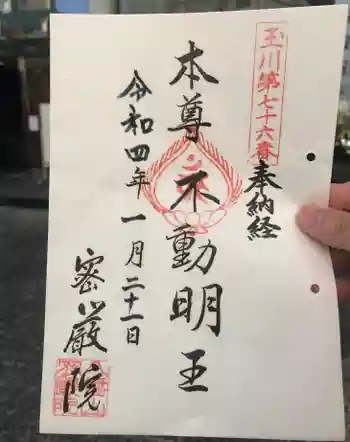 玉川第七十六番
奉納経
本尊不動明王
令和四年一月二十一日
密厳院